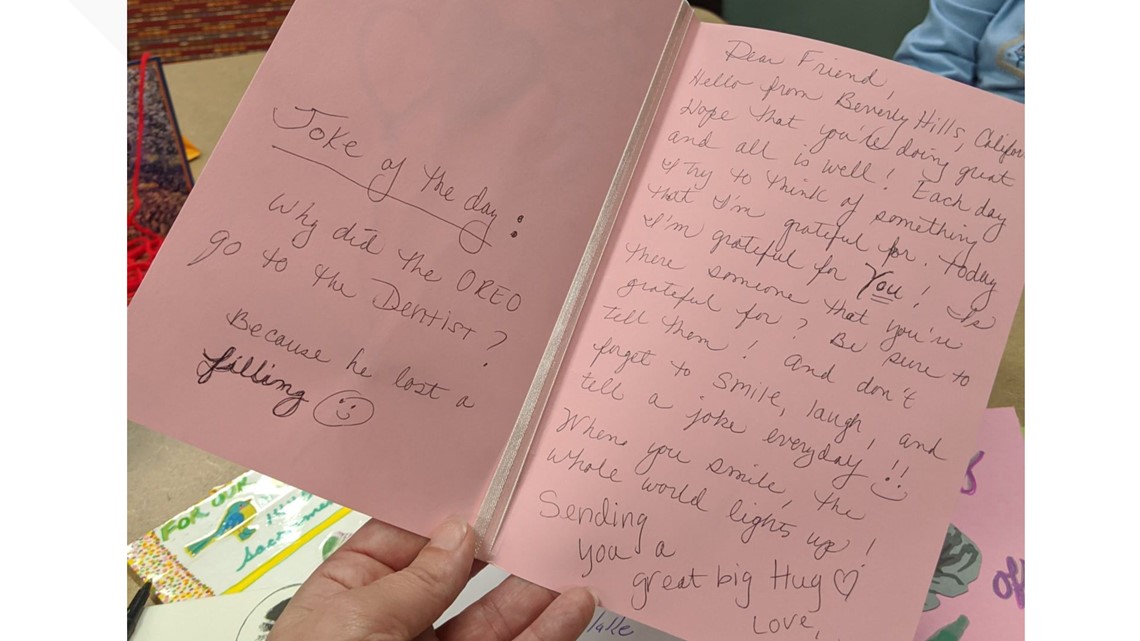 Joke of the day:
Why did the OREO
go to the Dentist?
Because he lost a
filling
Dear Friend,
Hello from Beverly Hills, Califor
Hope that you're doing great
and all is well! Each day
I try to think of something
that I'm grateful for. Today
I'm grateful for You! Is
there someone that you're
grateful for? Be sure to
tell them! And don't
forget to smile, laugh, and
tell a joke everyday!!
When you smile, the
whole world lights up!
Sending
you a
great big Hug ♡
Love,
FOR OUR